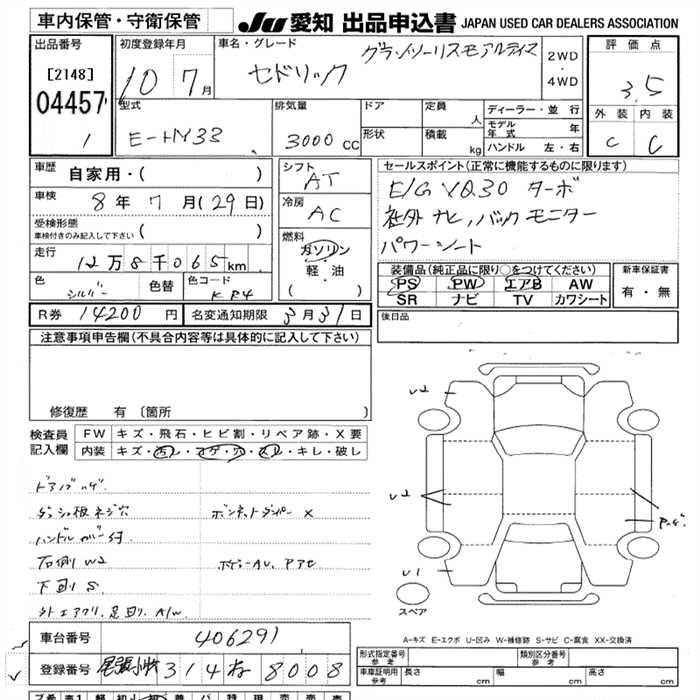 車内保管・守衛保管
JU 愛知 出品申込書 JAPAN USED CAR DEALERS ASSOCIATION
出品番号
[2148]
04457
1
初度登録年月
10 7月
車名・グレード
セドリック グランツーリスモアルティマ
2WD
・
4WD
評価点
3.5
型式
E-HY33
排気量
3000cc
ドア
形状
定員 人
積載 kg
ディーラー・並行
モデル年式 年
ハンドル 左・右
外装 内装
C C
車歴 自家用・( )
車検 8年 7月(29日)
受検形態
車検付きのみ記入して下さい ( )
走行 12万8千065km
色 シルバー 色替 色コード KR4
シフト
AT
冷房
AC
燃料
ガソリン
・
軽・油
( )
セールスポイント(正常に機能するものに限ります)
E/G VQ30 ターボ
社外ナビ, バックモニター
パワーシート
装備品(純正品に限り○をつけてください)
PS PW エアB AW
SR ナビ TV カワシート
新車保証書
有・無
R券 14200円 名変通知期限 3月31日
後日品
注意事項申告欄(不具合内容等は具体的に記入して下さい)
修復歴 有 〔箇所 〕
検査員記入欄
FW キズ・飛石・ヒビ割・リペア跡・X要
内装 キズ・汚レ・コゲ・穴・スレ・キレ・破レ
ダッシュ板ネジ穴 ボンネットダンパー X
ハンドルカバー付
右側 W2
下回り S
外エアクリ, 足回り, A/W
U2
U2
U1
スペア
A-キズ E-エクボ U-凹み W-補修跡 S-サビ C-腐食 XX-交換済
車台番号 406291
登録番号 尾張小牧 314 ね 8008
型式指定番号 参考
類別区分番号 参考
車庫証明用 参考 長さ cm 幅 cm 高さ cm